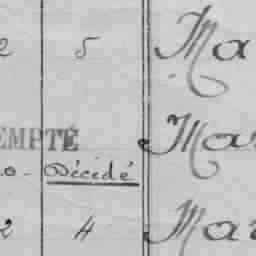 2 5 Ma
EMPTÉ Mar
o - Décédé
2 4 Mar